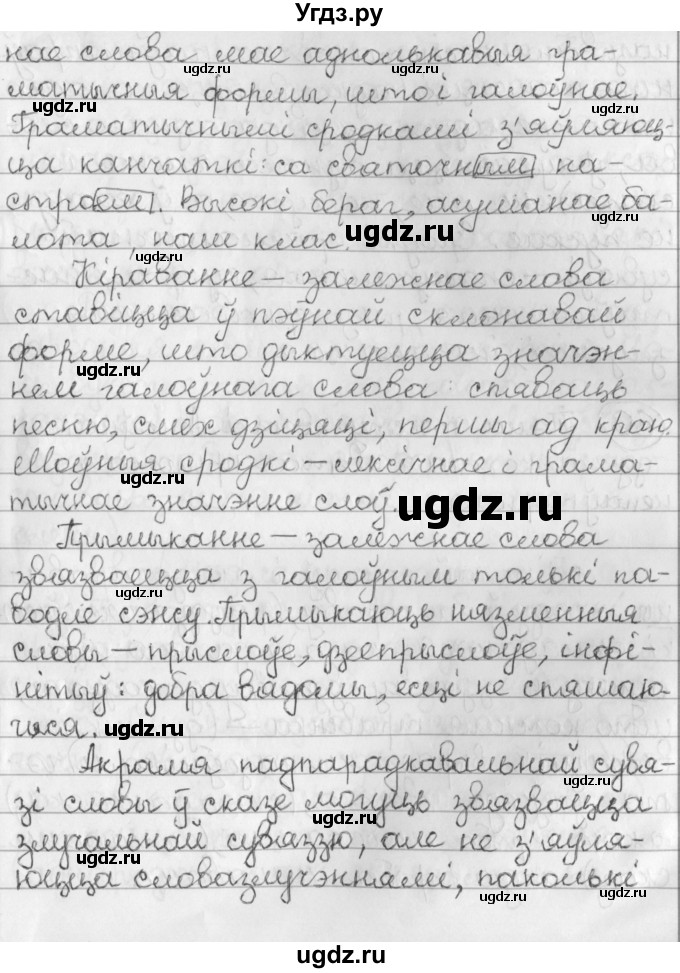 Угдз.ру
нае слова мае аднолькавыя гра-
матычныя формы, што і галоўнае.
Граматычнымі сродкамі з'яўляюц-
ца канчаткі: са святочным на-
строем. Высокі бераг, асушанае ба-
лота, наш клас.
Кіраванне – залежнае слова
ставіцца ў пэўнай склонавай
форме, што дыктуецца значэн-
нем галоўнага слова: спяваць
песню, смех дзіцяці, першы ад краю.
Моўныя сродкі – лексічнае і грама-
тычнае значэнне слоў.
Прымыканне – залежнае слова
звязваецца з галоўным толькі па-
водле сэнсу. Прымыкаюць нязменныя
словы – прыслоўе, дзеепрыслоўе, інфі-
нітыў: добра вядомы, есці не спяшаю-
чыся.
Акрамя падпарадкавальнай сувя-
зі словы ў сказе могуць звязвацца
злучальнай сувяззю, але не з'яўля-
юцца словазлучэннямі, паколькі
ugdz.ru